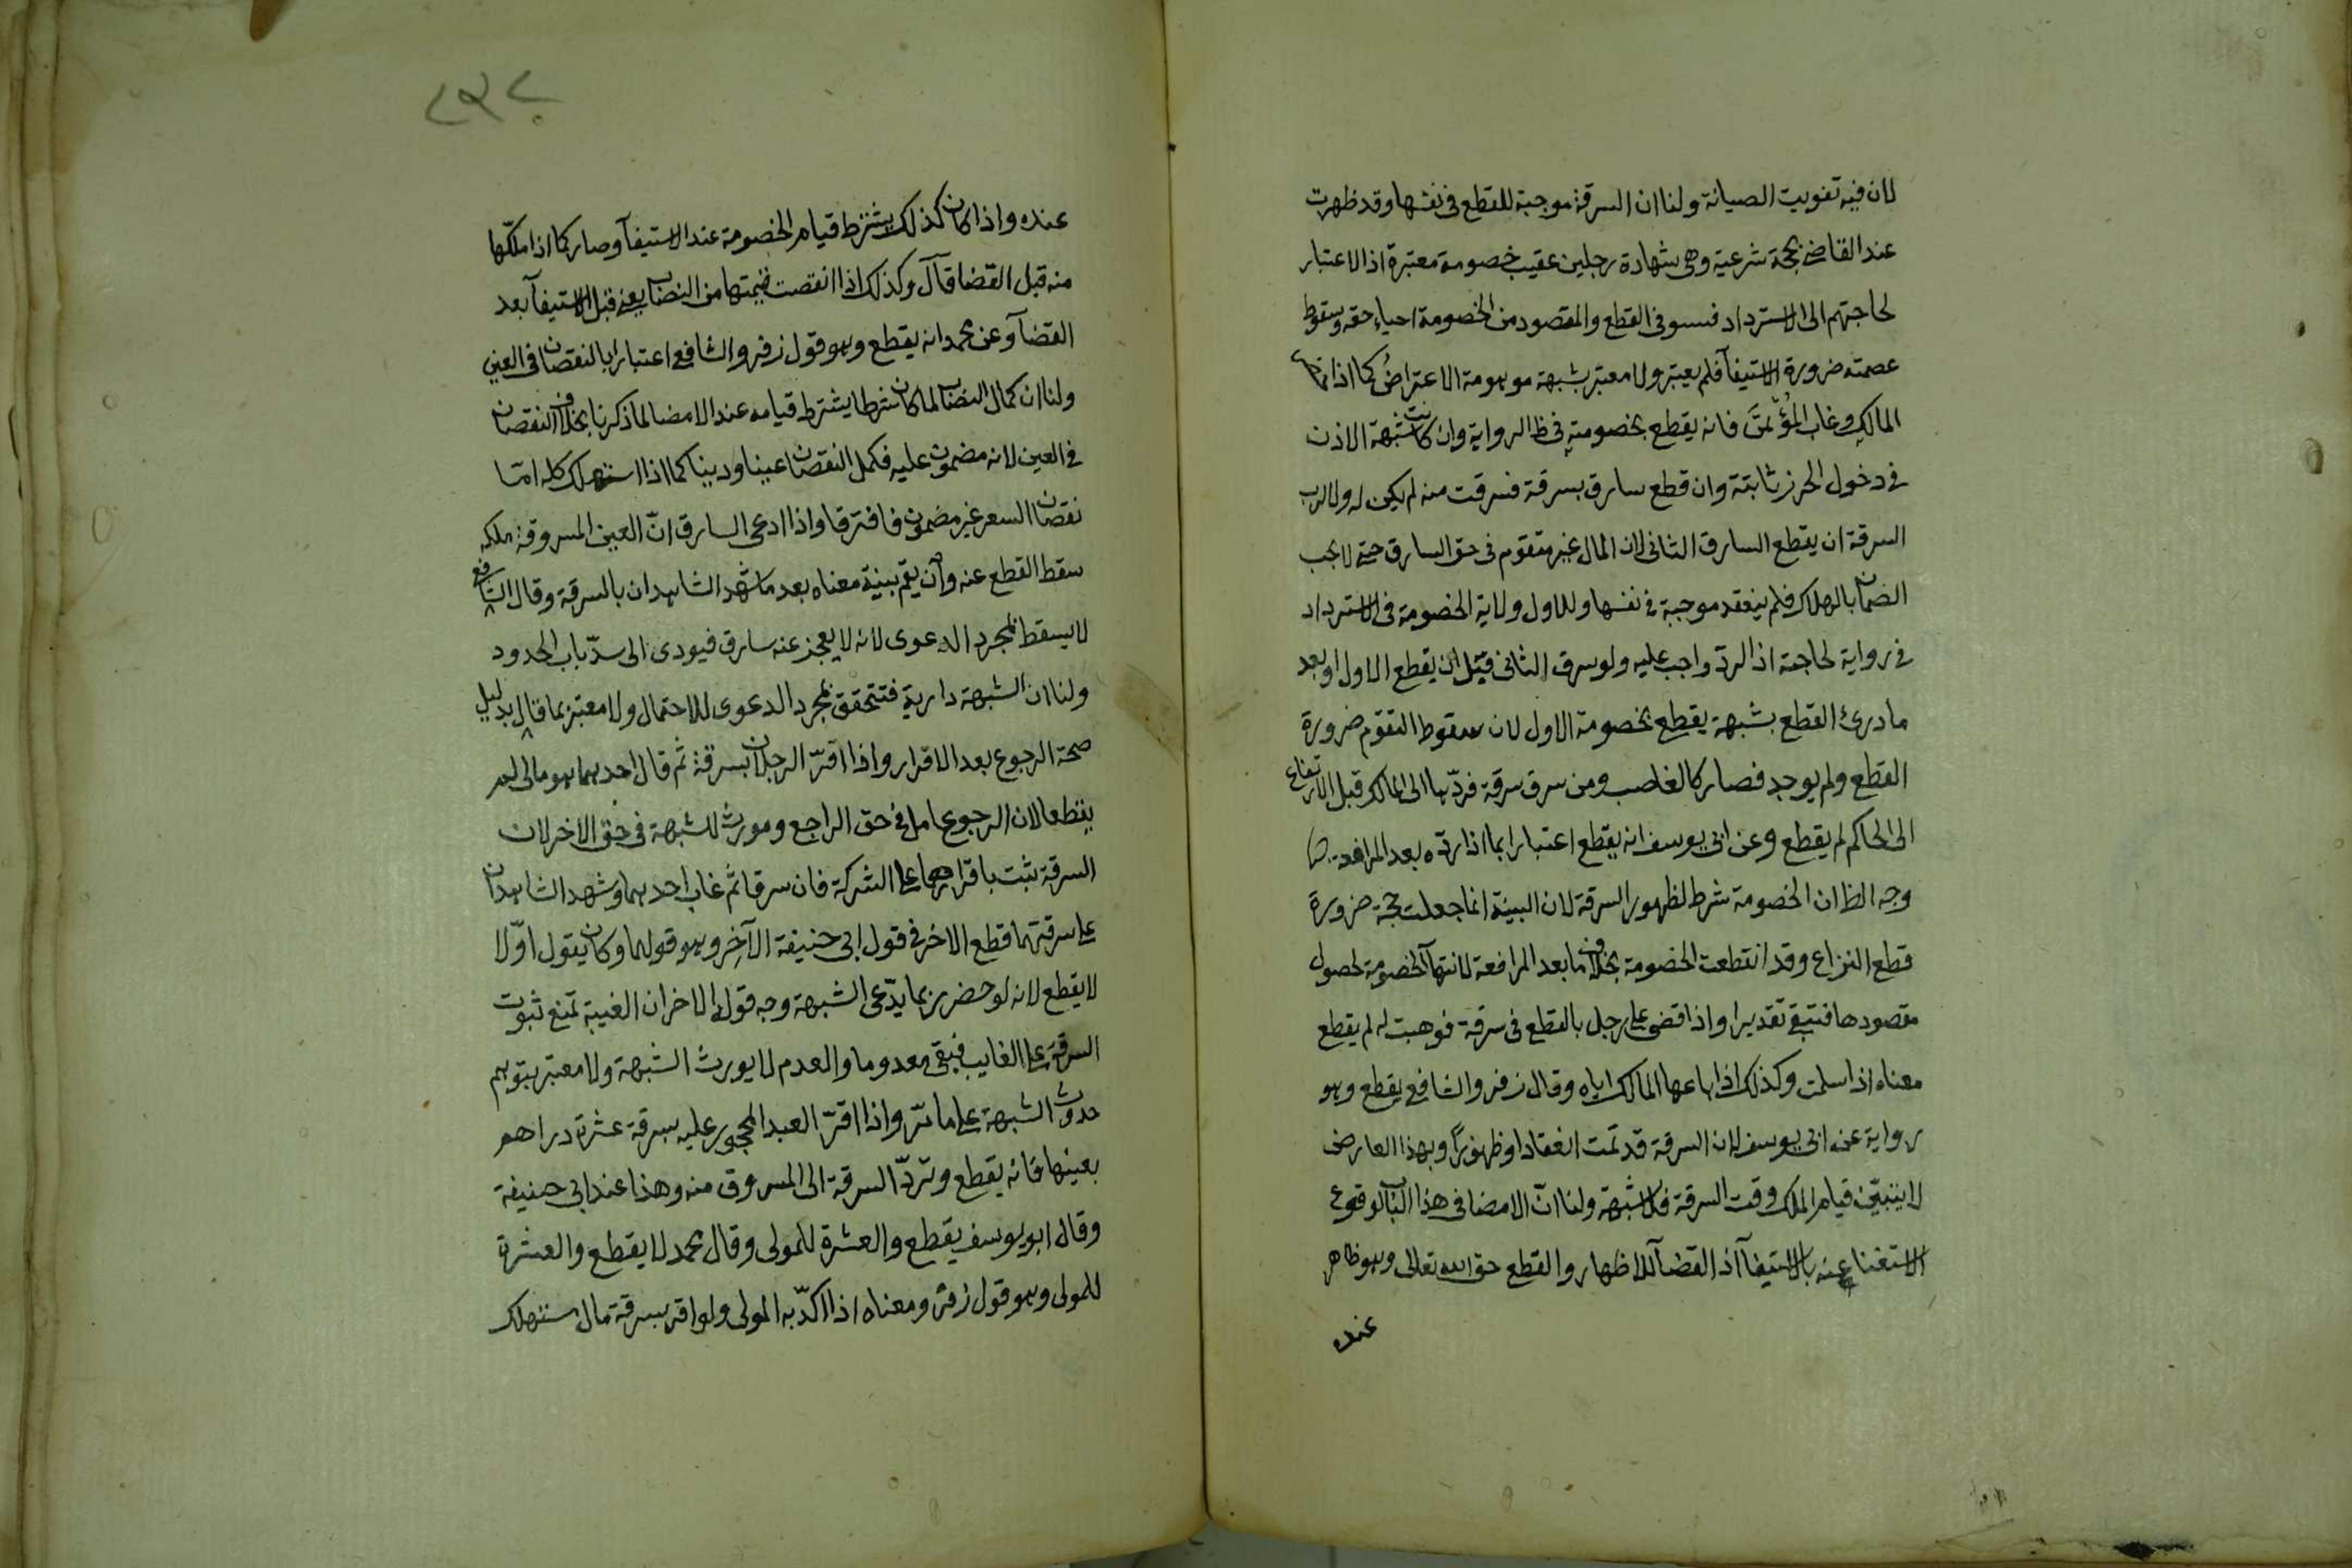 لان فيه تفويت الصيانة ولنا ان السرقة موجبة للقطع في نفسها وقد ظهرت
عند القاضي بحجة شرعية وهي شهادة رجلين عقيب خصومة معتبرة اذ الاعتبار
لحاجتهم الى الاسترداد فيستوفى القطع والمقصود من الخصومة احياء حقه وسقوط
عصمته ضرورة الاستيفآ فلم يعتبر ولا معتبر بشبهة موهومة الاعتراض كما اذا
المالك وغاب المؤتمن فانه يقطع بخصومته في ظ الرواية وان كانت شبهة الاذن
في دخول الحرز ثابتة وان قطع سارق بسرقة فسرقت منه لم يكن له ولا لرب
السرقة ان يقطع السارق الثاني لان المال غير متقوم في حق السارق حتى لا يجب
الضمان بالهلاك فلم ينعقد موجبة في نفسها وللاول ولاية الخصومة في الاسترداد
في رواية لحاجته اذ الرد واجب عليه ولو سرق الثاني قبل ان يقطع الاول او بعد
ما درئ القطع بشبهة يقطع بخصومة الاول لان سقوط التقوم ضرورة
القطع ولم يوجد فصار كالغاصب ومن سرق سرقة فردّها الى المالك قبل الارتفاع
الى الحاكم لم يقطع وعن ابي يوسف انه يقطع اعتبارا بما اذا ردّه بعد المرافعة
وجه الظ ان الخصومة شرط لظهور السرقة لان البينة انما جعلت حجة ضرورة
قطع النزاع وقد انقطعت الخصومة بخلاف ما بعد المرافعة لانتهآ الخصومة لحصول
مقصودها فتبقى تقديرا واذا قضى على رجل بالقطع في سرقة فوهبت له لم يقطع
معناه اذا سلمت وكذلك اذا باعها المالك اياه وقال زفر والشافعي يقطع وهو
رواية عن ابي يوسف لان السرقة قد تمت انعقادا وظهورًا وبهذا العارض
لا يتبيّن قيام الملك وقت السرقة فلا شبهة ولنا انّ الامضا في هذا الباب لوقوع
الاستغنا عنه بالاستيفآ اذ القضآ للاظهار والقطع حق الله تعالى وهو ظاهر
عنده
عنده واذا كان كذلك يشترط قيام الخصومة عند الاستيفآ وصار كما اذا ملكّها
منه قبل القضا قآل وكذلك اذا انقصت قيمتها من النصاب يعني قبل الاستيفآ بعد
القضآ وعن محمد انه يقطع وهو قول زفر والشافعي اعتبارا بالنقصان في العين
ولنا ان كمال النصاب لما كان شرطا يشترط قيامه عند الامضا لما ذكرنا بخلاف النقصان
في العين لانه مضمون عليه فكمل النقصان عينا ودينا كما اذا استهلك كله امّا
نقصان السعر غير مضمون فافترقا واذا ادعى السارق انّ العين المسروقة ملكه
سقط القطع عنه وان لم يقم بينة معناه بعد ما شهد الشاهدان بالسرقة وقال الشافعي
لا يسقط بمجرد الدعوى لانه لا يعجز عنه سارق فيودى الى سدّ باب الحدود
ولنا ان الشبهة دارية فتتحقق بمجرد الدعوى للاحتمال ولا معتبر بما قال بدليل
صحة الرجوع بعد الاقرار واذا اقرّ الرجلان بسرقة ثم قال احدهما هو مالي لم
يقطعا لان الرجوع عامل في حق الراجع ومورث للشبهة في حق الاخر لان
السرقة تثبت باقرارهما على الشركة فان سرقا ثم غاب احدهما وشهد الشاهدان
على سرقتهما قطع الاخر في قول ابي حنيفة الآخِر وهو قولهما وكان يقول اوّلا
لا يقطع لانه لو حضر ربما يدّعى الشبهة وجه قوله الاخر ان الغيبة تمنع ثبوت
السرقة على الغايب فيبقى معدوما والعدم لا يورث الشبهة ولا معتبر بتوهم
حدوث الشبهة على ما مرّ واذا اقرّ العبد المحجور عليه بسرقة عشرة دراهم
بعينها فانه يقطع وتردّ السرقة الى المسروق منه وهذا عند ابي حنيفة
وقال ابو يوسف يقطع والعشرة للمولى وقال محمد لا يقطع والعشرة
للمولى وهو قول زفر ومعناه اذا اكدّبه المولى ولو اقر بسرقة مال مستهلك